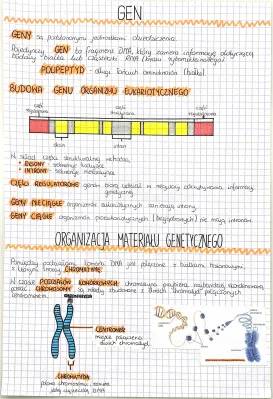 GEN
GENY są podstawowymi jednostkami dziedziczenia.
Pojedynczy GEN to fragment DNA, który zawiera informację dotyczącą
budowy białka lub cząsteczki RNA
POLIPEPTYD - długi łańcuch aminokwasów (białko)
BUDOWA GENU ORGANIZMU EUKARIOTYCZNEGO
część część część
W skład części strukturalnej wchodzą:
• EKSONY - sekwencje kodujące
• INTRONY - sekwencje niekodujące
CZĘŚCI REGULATOROWE genów biorą udział w regulacji informacji
genetycznej
GENY NIECIĄGŁE organizmów eukariotycznych zawierają introny
GENY CIĄGŁE organizmów prokariotycznych (bezjądrowych) nie mają intronów
ORGANIZACJA MATERIAŁU GENETYCZNEGO
Pomiędzy podziałami komórki DNA jest połączone z białkami histonowymi
i tworzy CHROMATYNĘ
W czasie PODZIAŁÓW KOMÓRKOWYCH chromatyna przybiera
postać CHROMOSOMÓW są wtedy zbudowane z dwóch chromatyd połączonych
centromerem
CENTROMER
miejsce połączenia
dwóch chromatyd
CHROMATYDA
połowa chromosomu, zawiera
jedną cząsteczkę DNA